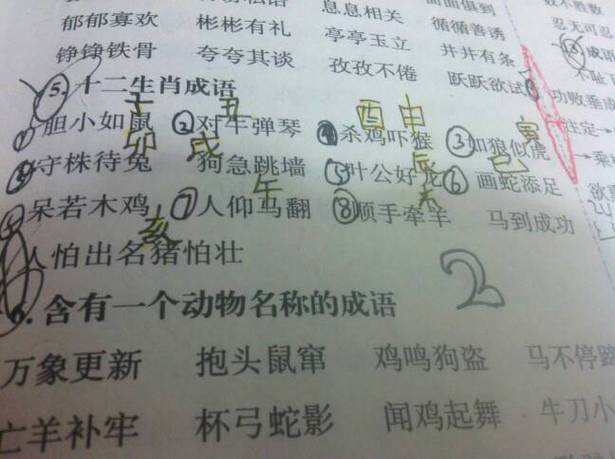 息息相关 面面俱到
郁郁寡欢 彬彬有礼 亭亭玉立 循循善诱
铮铮铁骨 夸夸其谈 孜孜不倦 井井有条
跃跃欲试
5. 十二生肖成语
子 丑 酉 申 寅
①胆小如鼠 ②对牛弹琴 ④杀鸡吓猴 ③如狼似虎
卯 戌 辰 巳
④守株待兔 狗急跳墙 ⑤叶公好龙 ⑥画蛇添足
午 未
呆若木鸡 ⑦人仰马翻 ⑧顺手牵羊 马到成功
亥
人怕出名猪怕壮
2
6. 含有一个动物名称的成语
万象更新 抱头鼠窜 鸡鸣狗盗 马不停蹄
亡羊补牢 杯弓蛇影 闻鸡起舞 牛刀小
数不胜数
忍无可忍
成语
不耻
功败垂